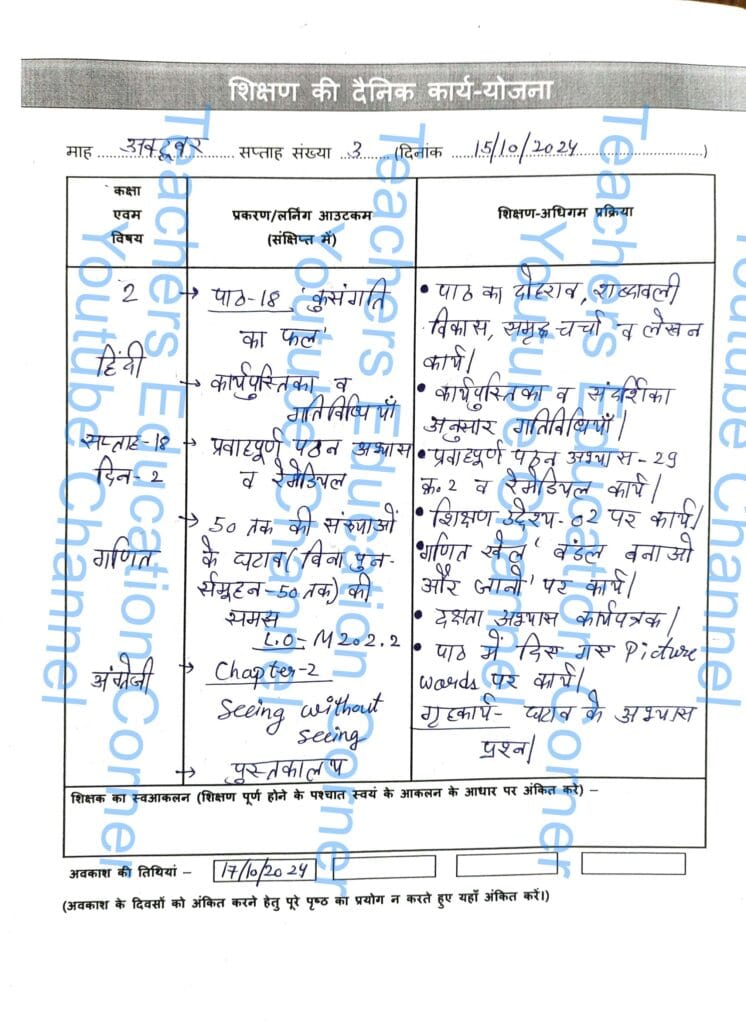 शिक्षण की दैनिक कार्य-योजना
माह अक्टूबर सप्ताह संख्या 3 (दिनांक 15/10/2024)
कक्षा
एवम
विषय
प्रकरण/लर्निंग आउटकम
(संक्षिप्त में)
शिक्षण-अधिगम प्रक्रिया
2
हिंदी
सप्ताह-18
दिन-2
गणित
अंग्रेजी
→ पाठ-18 'कुसंगति
का फल'
→ कार्यपुस्तिका व
गतिविधियाँ
→ प्रवाहपूर्ण पठन अभ्यास
व रेमेडियल
→ 50 तक की संख्याओं
के घटाव (बिना पुन-
र्समूहन-50 तक) की
समझ
L.O-M202.2
→ Chapter-2
Seeing without
seeing
→ पुस्तकालय
• पाठ का दोहराव, शब्दावली
विकास, समूह चर्चा व लेखन
कार्य।
• कार्यपुस्तिका व संदर्शिका
अनुसार गतिविधियाँ।
• प्रवाहपूर्ण पठन अभ्यास-29
क्र.2 व रेमेडियल कार्य।
• शिक्षण उद्देश्य-02 पर कार्य।
गणित खेल 'बंडल बनाओ
और जानो' पर कार्य।
• दक्षता अभ्यास कार्यपत्रक।
• पाठ में दिए गए Picture
words पर कार्य।
गृहकार्य- घटाव के अभ्यास
प्रश्न।
शिक्षक का स्वआकलन (शिक्षण पूर्ण होने के पश्चात स्वयं के आकलन के आधार पर अंकित करें) –
अवकाश की तिथियां – 17/10/2024
(अवकाश के दिवसों को अंकित करने हेतु पूरे पृष्ठ का प्रयोग न करते हुए यहाँ अंकित करें।)
Teachers Education Corner
Youtube Channel
Teachers Education Corner
Youtube Channel
Teachers Education Corner
Youtube Channel